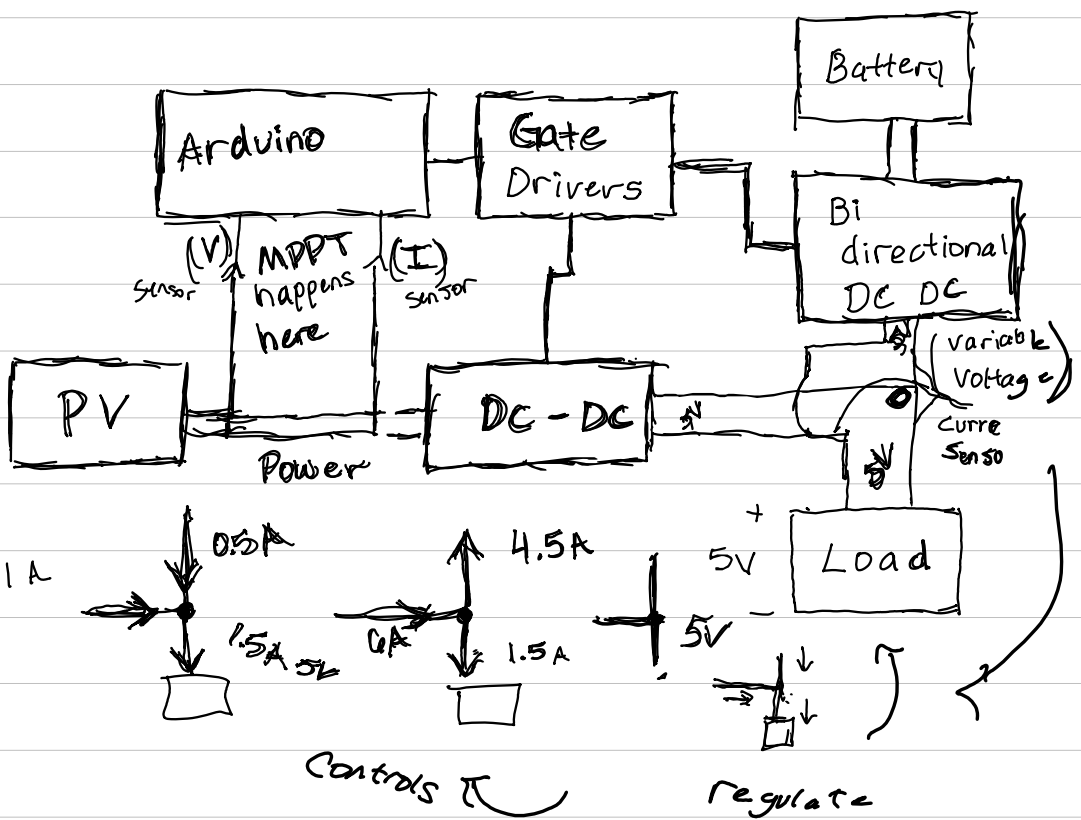 Battery
Arduino
Gate
Drivers
Bi
directional
DC DC
(V)
sensor
MPPT
happens
here
(I)
sensor
(variable
voltage)
PV
DC-DC
Power
5V
Curre
Senso
5V
+
5V
-
Load
1A
0.5A
1.5A 5V
6A
4.5A
1.5A
5V
Controls
regulate